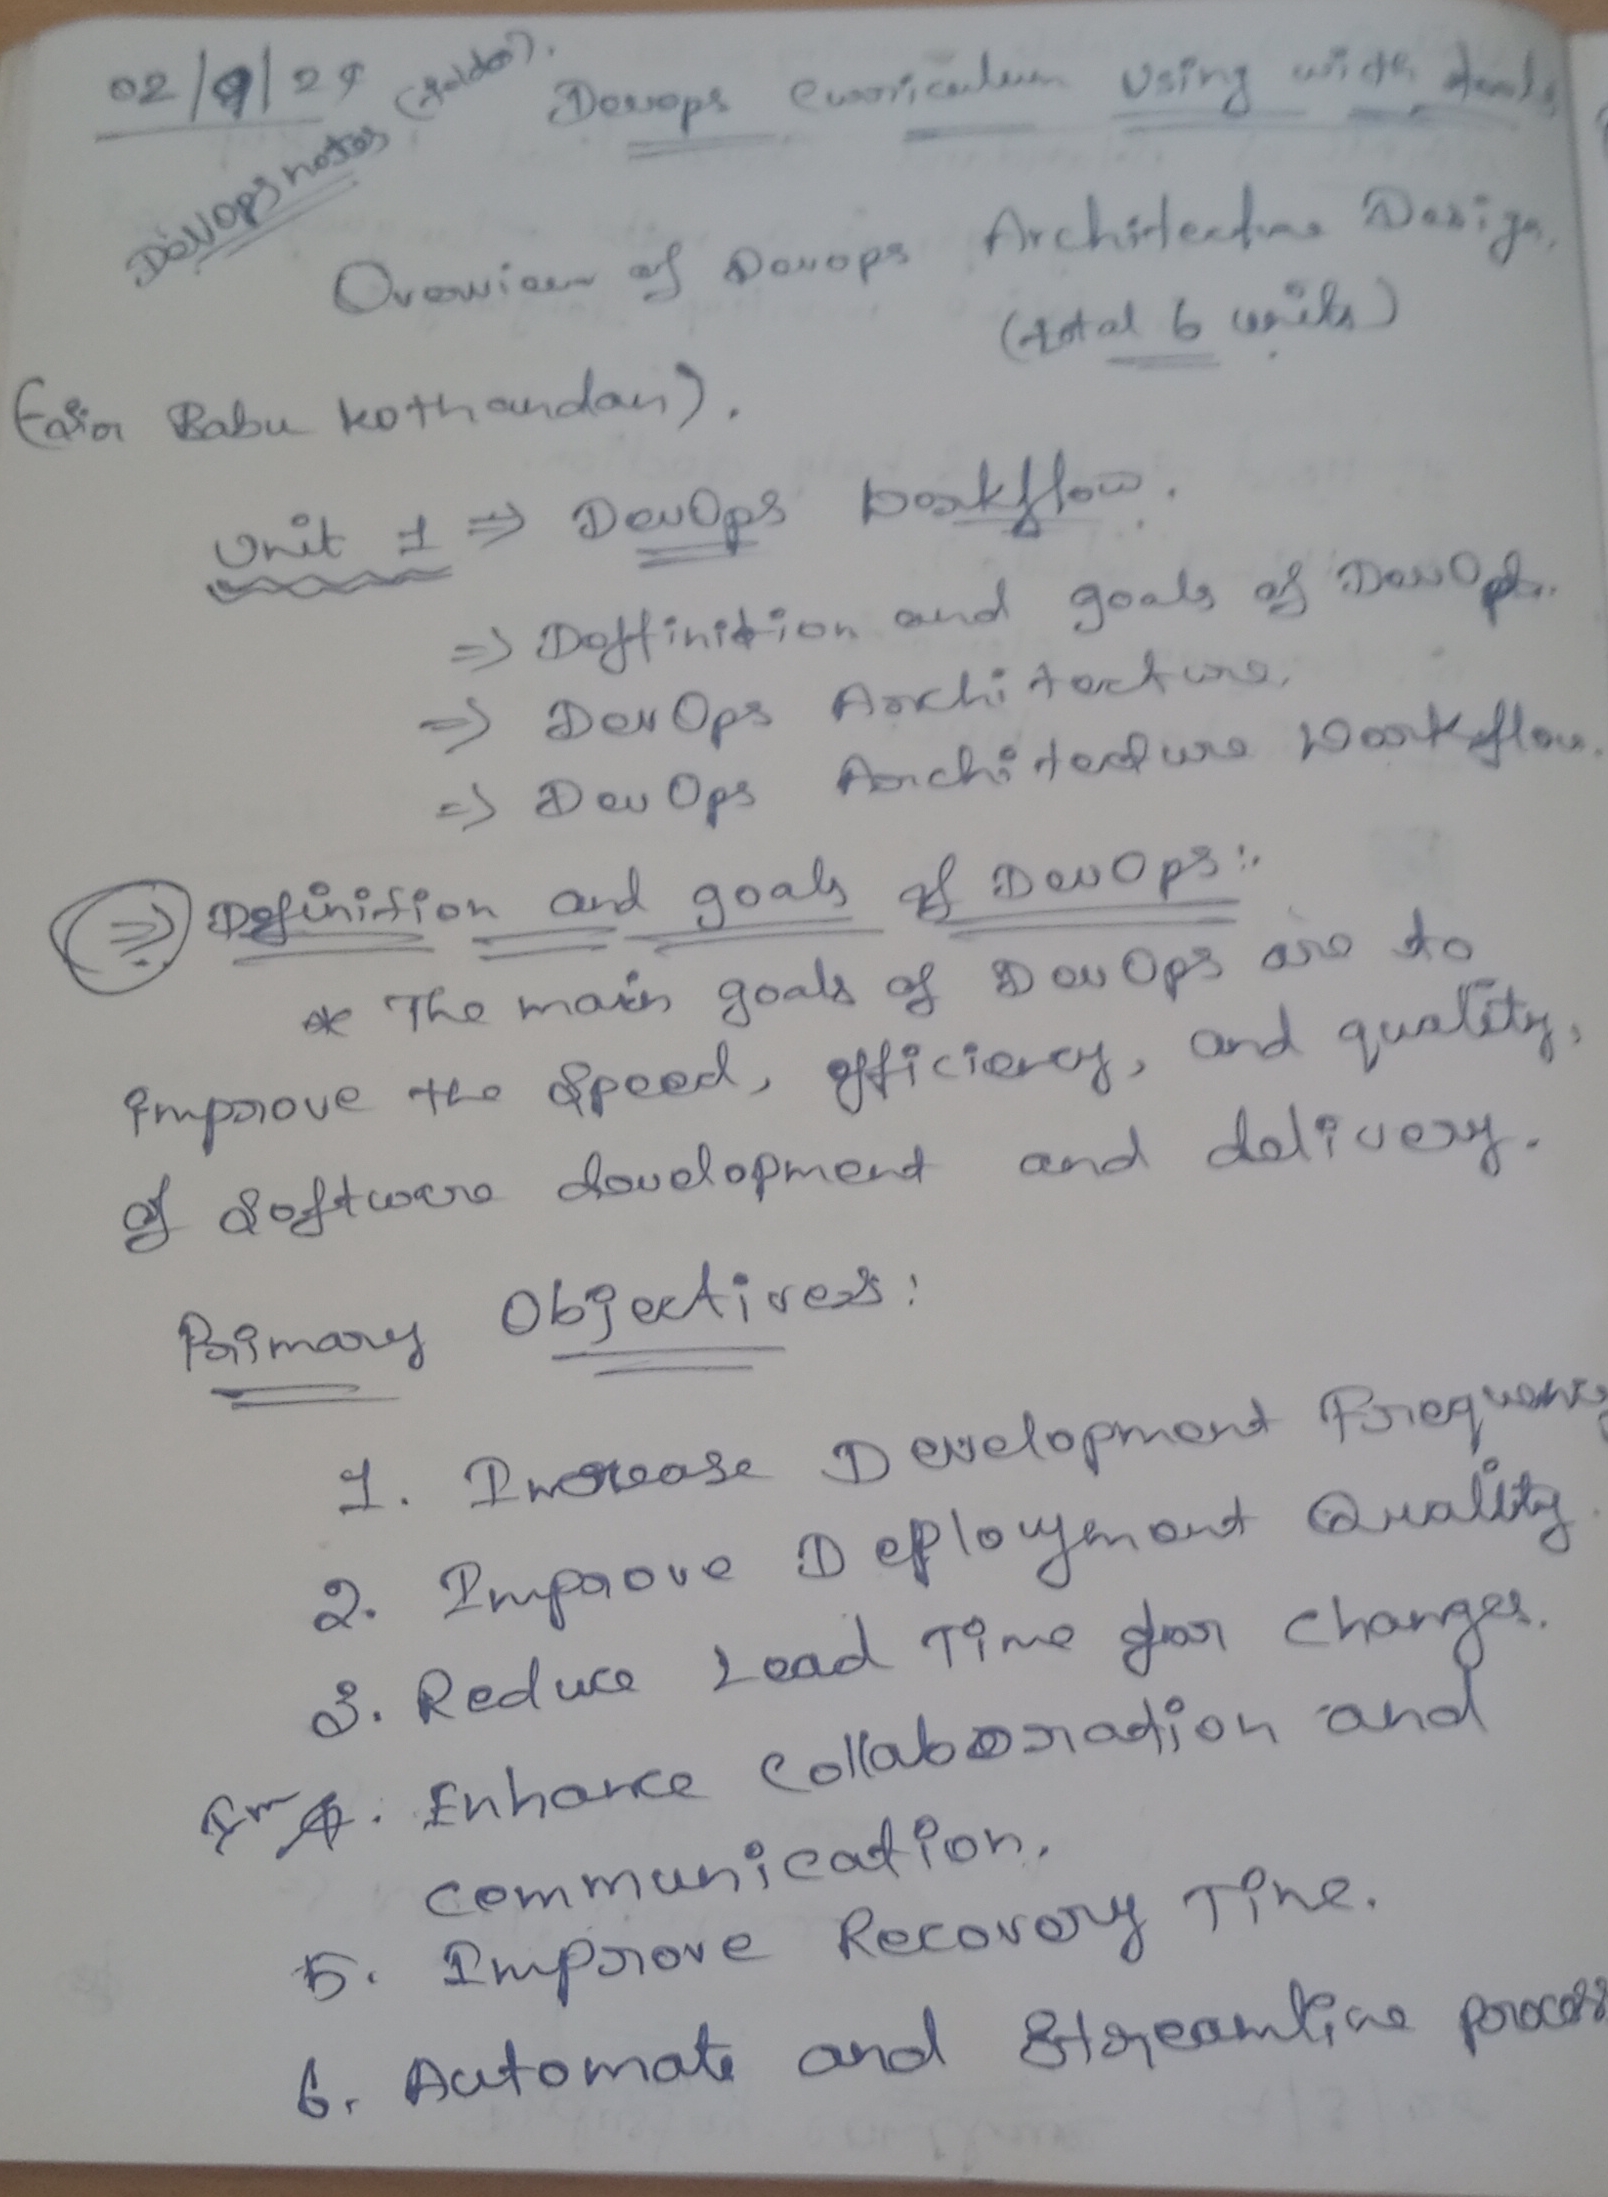 02/9/24
DevOps notes (folder).
Devops Curriculum Using with tools
Overview of Devops Architecture Design.
(total 6 units)
(sir Babu kothandan).
Unit 1 => DevOps Workflow.
=> Deffinition and goals of DevOps.
=> DevOps Architecture.
=> DevOps Architecture Workflow.
=> Definition and goals of DevOps:
* The main goals of DevOps are to
improve the speed, efficiency, and quality,
of software development and delivery.
Primary Objectives:
1. Increase Development Frequency
2. Improve Deployment Quality
3. Reduce Lead Time for changes.
Im 4. Enhance Collaboration and
communication.
5. Improve Recovery Time.
6. Automate and Streamline process